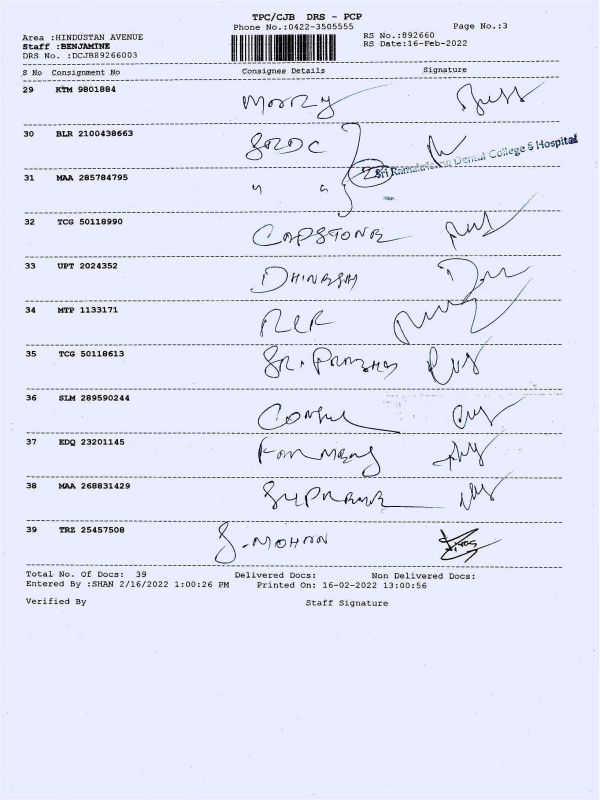 TPC/CJB DRS - PCP
Phone No.:0422-3505555 Page No.:3
Area :HINDUSTAN AVENUE RS No.:892660
Staff :BENJAMINE RS Date:16-Feb-2022
DRS No. :DCJB89266003
S No Consignment No Consignee Details Signature
29 KTM 9801884 Moorzy
30 BLR 2100438663 SRDC
Sri Ramakrishna Dental College & Hospital
31 MAA 285784795
32 TCG 50118990 CAPSTONE
33 UPT 2024352 DHINESH
34 MTP 1133171
35 TCG 50118613 Sri.
36 SLM 289590244
37 EDQ 23201145
38 MAA 268831429 SUPREME
39 TRZ 25457508 S-MOHAN
Total No. Of Docs: 39 Delivered Docs: Non Delivered Docs:
Entered By :SHAN 2/16/2022 1:00:26 PM Printed On: 16-02-2022 13:00:56
Verified By Staff Signature